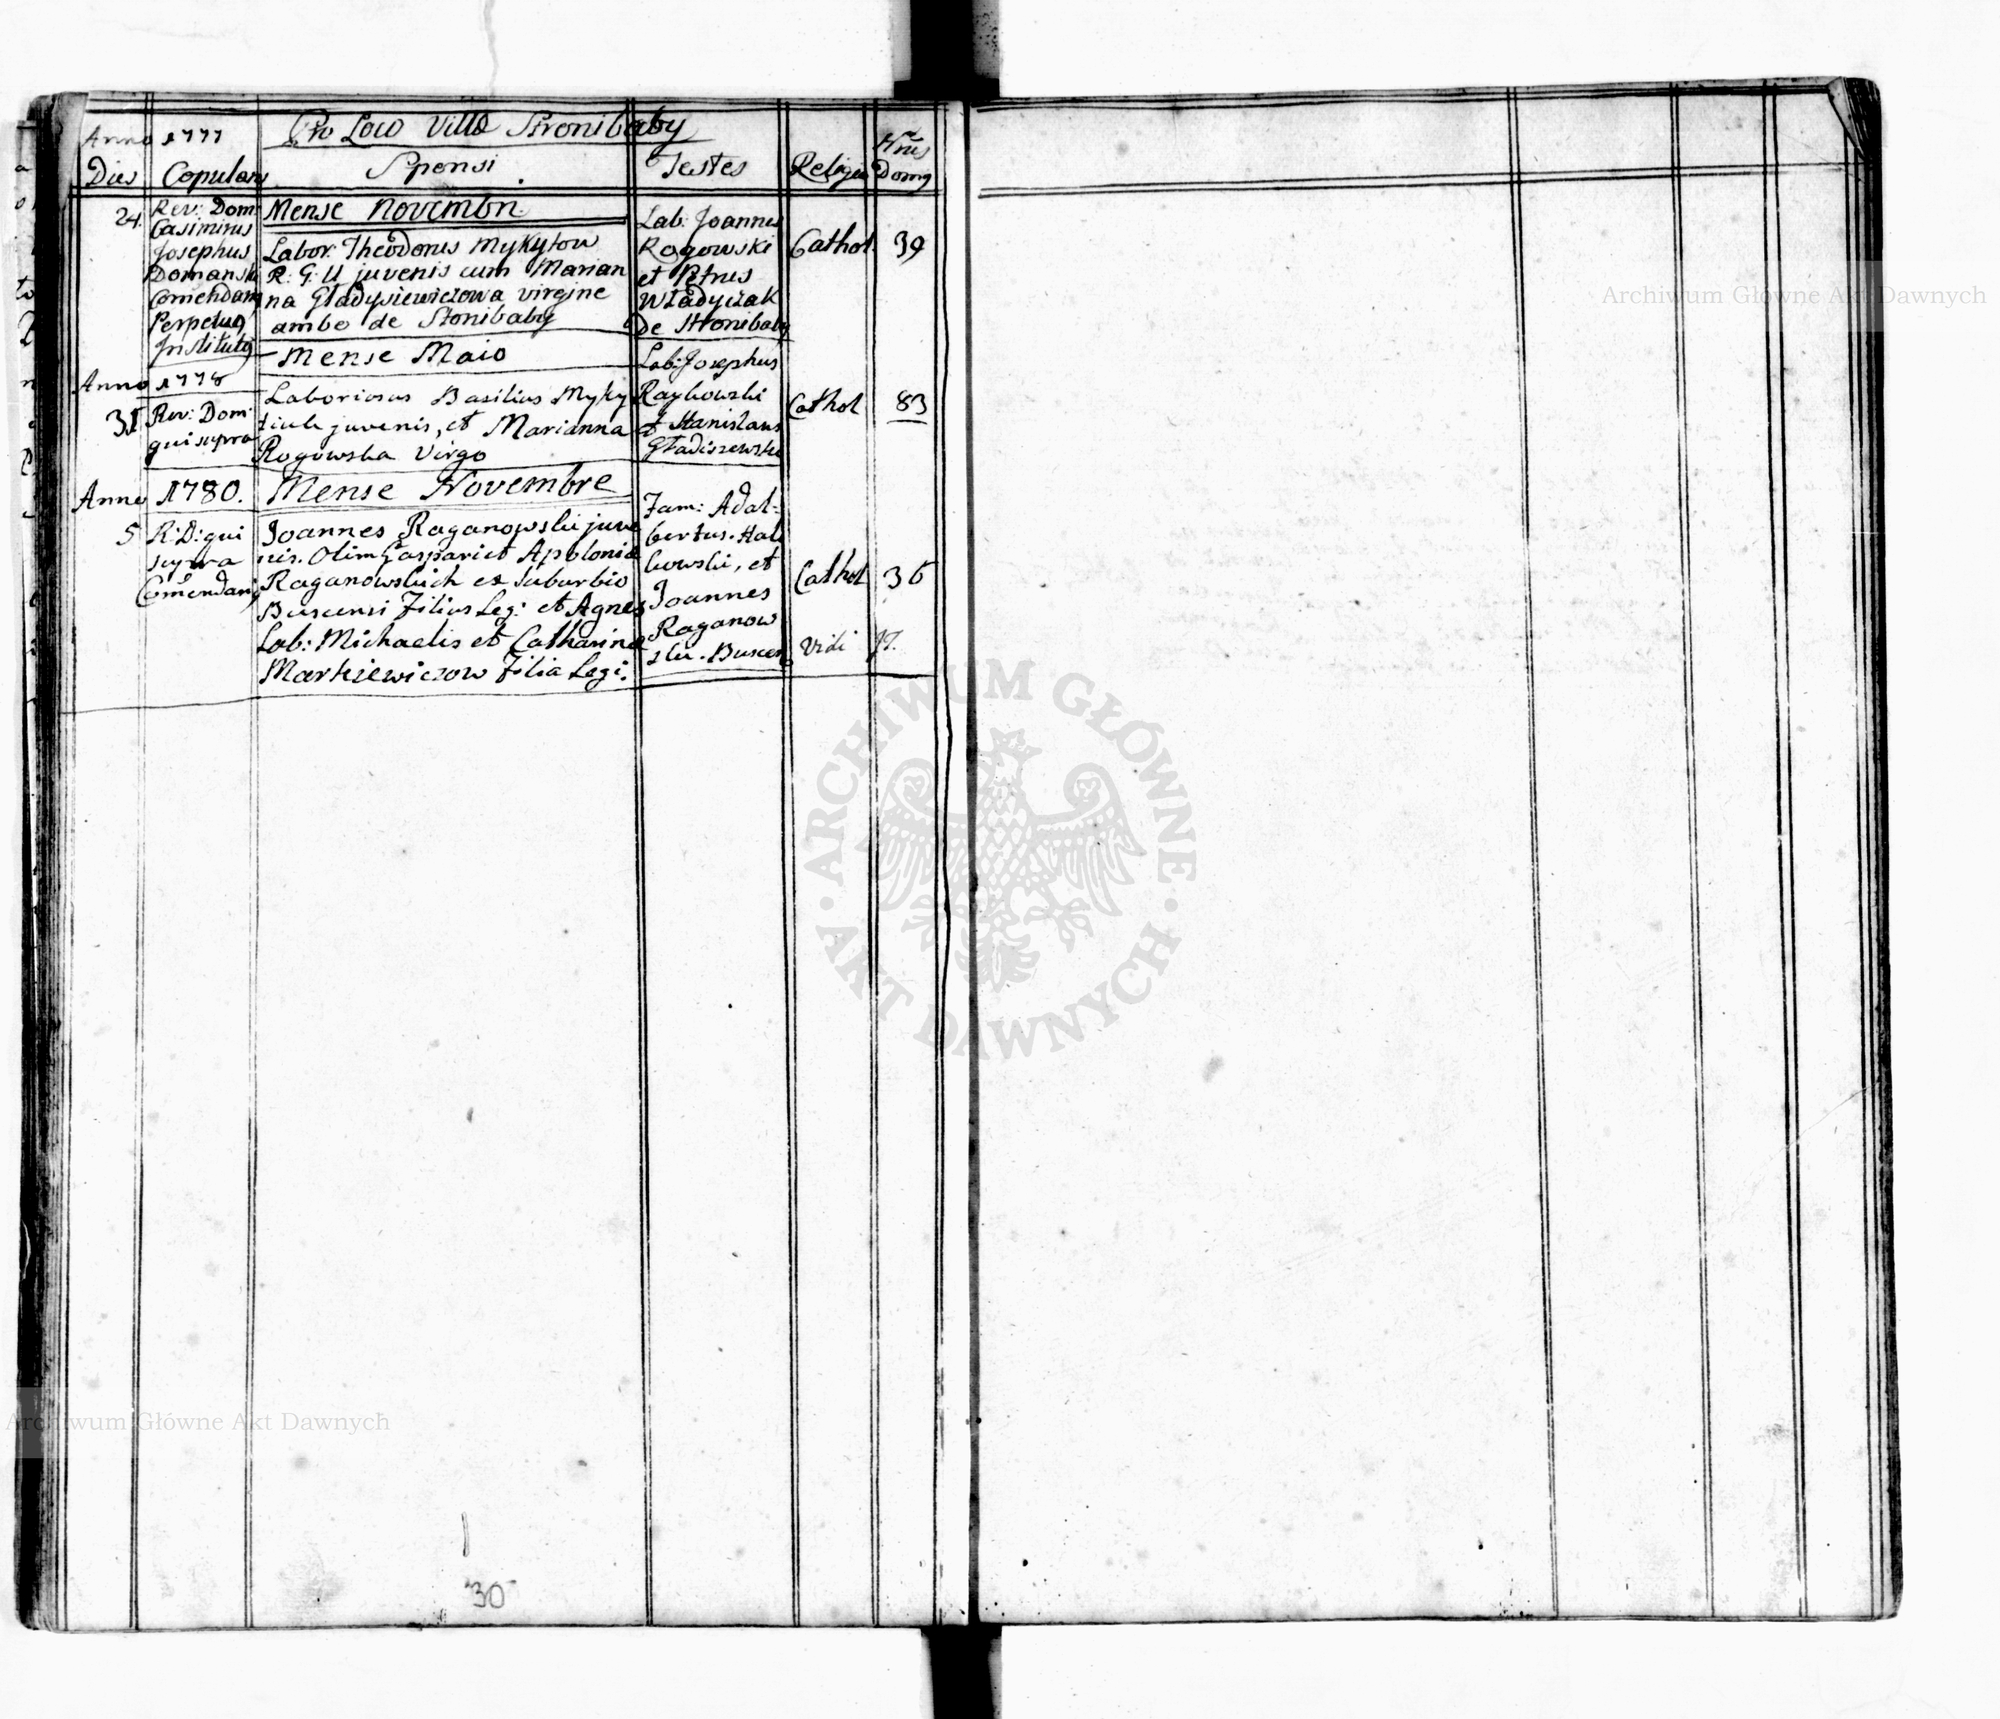 Anno 1777
Pro Loco Villæ Stronibaby
Nrus
Dies
Copulans
Sponsi
Testes
Religio
Domus
24.
Rev: Dom:
Casimirus
Josephus
Domanski
Comendarius
Perpetuus
Institutus
Mense Novembri
Labor: Theodorus Mykytow
R. G. U juvenis cum Marian
na Gładysiewiczowa virgine
ambo de Stonibaby
Lab: Joannes
Rogowski
et Petrus
Władyczak
De Stronibaby
Cathol.
39
Mense Maio
Anno 1778
31
Rev: Dom:
qui supra
Laboriosus Basilius Myky
tiuk juvenis, et Marianna
Rogowska Virgo
Lab: Josephus
Raykowski
et Stanislaus
Gładiszewski
Cathol
83
Anno 1780.
Mense Novembre
5
R: D: qui
supra
Comendarius
Joannes Raganowski juve
nis. Olim Gaspari et Apolonia
Raganowskich ex suburbio
Buscensi Filius Leg: et Agnes
Lab: Michaelis et Catharina
Markiewiczow Filia Legi:
Fam: Adal-
bertus. Hal
kowski, et
Joannes
Raganow
ski. Buscen
Cathol
36
Vidi
30
Archiwum Główne Akt Dawnych
Archiwum Główne Akt Dawnych
ARCHIWUM GŁÓWNE
AKT DAWNYCH